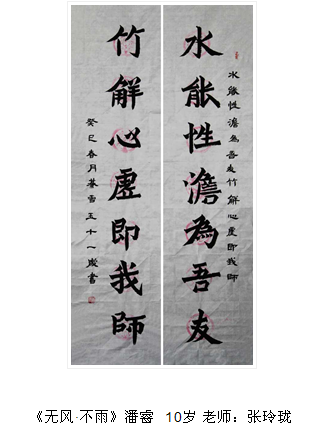 水能性澹為吾友竹解心虛即我師
水能性澹為吾友
竹觧心虛即我師
癸巳春月雪五十一歲書
《无风·不雨》潘睿 10岁 老师：张玲珑